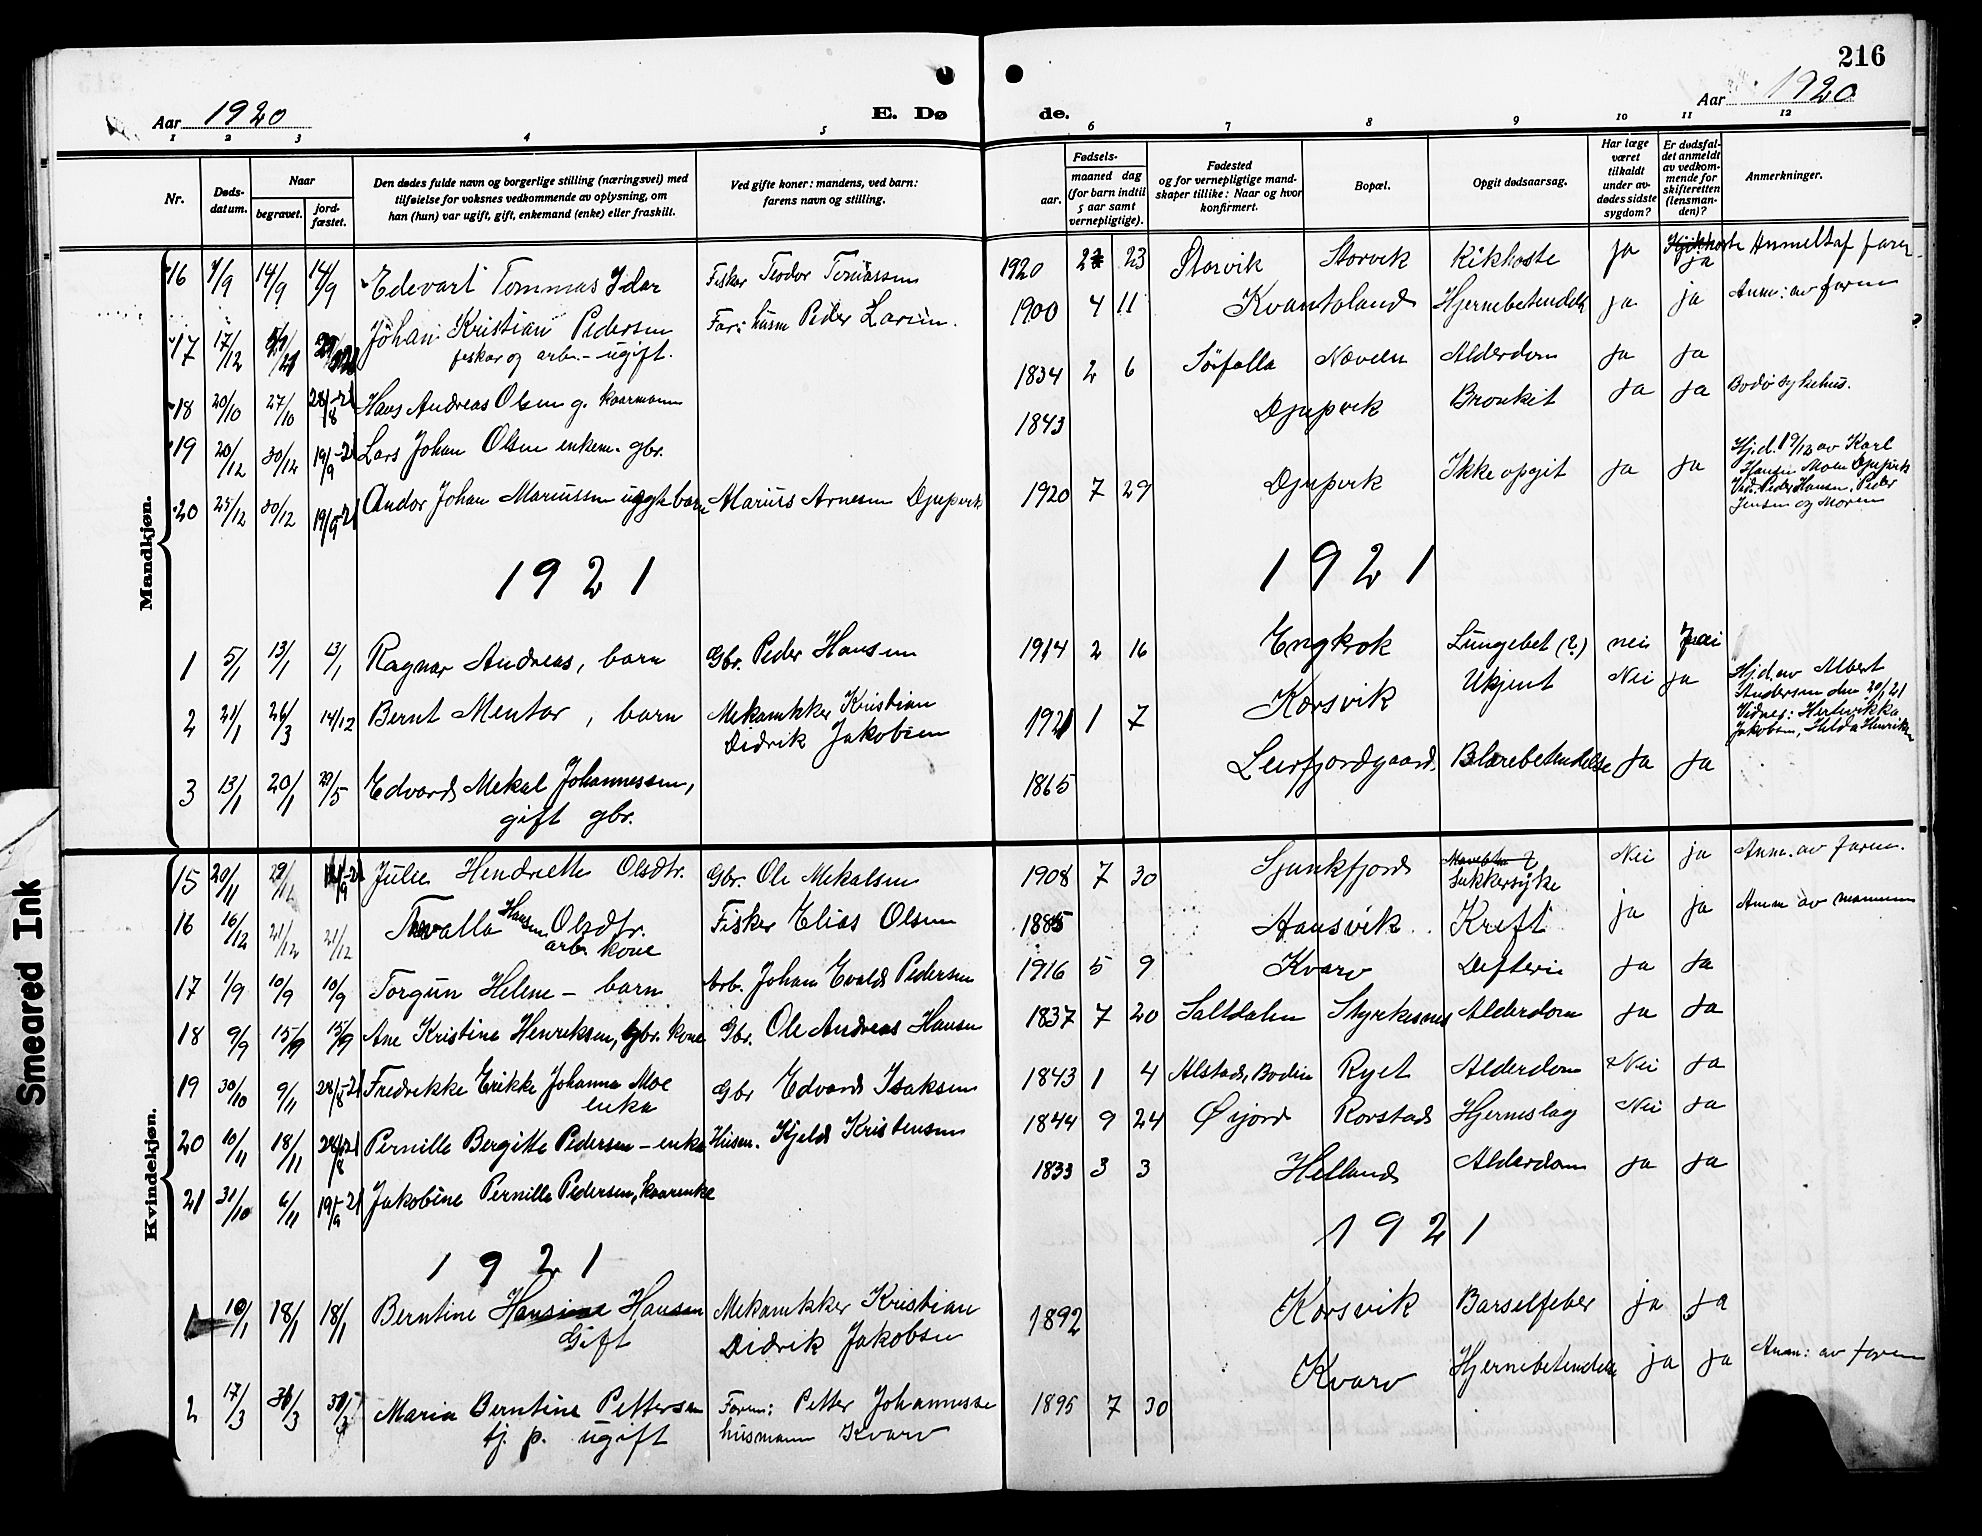 216
Aar 1920
E. Dø de.
Aar 1920
1 2 3 4 5 6 7 8 9 10 11 12
Nr.
Døds-datum.
Naar
begravet.
jord-fæstet.
Den dødes fulde navn og borgerlige stilling (næringsvei) med
tilføielse for voksnes vedkommende av oplysning, om
han (hun) var ugift, gift, enkemand (enke) eller fraskilt.
Ved gifte koner: mandens, ved barn:
farens navn og stilling.
Fødsels-
aar.
maaned dag
(for barn indtil
5 aar samt
vernepligtige).
Fødested
og for vernepligtige mand-
skaper tillike: Naar og hvor
konfirmert.
Bopæl.
Opgit dødsaarsag.
Har læge
været
tilkaldt
under av-
dødes sidste
sygdom?
Er dødsfal-
det anmeldt
av vedkom-
mende for
skifteretten
(lensman-
den)?
Anmerkninger.
Mandkjøn.
16 7/9 14/9 14/9 Edevart Tommas Idar Fisker Teodor 1920 2 23 Storvik Storvik Kikhoste ja ja Anmelt af faren
17 17/12 Johan Kristian Pedersen Far: husm Peder Larsen. 1900 4 11 Kvantoland Hjernebetendelse ja ja Anm: av faren
fisker og arb. - ugift.
18 20/10 27/10 28/8-21 Hans Andreas Olsen g. kaarmann 1834 2 6 Sørfolla Næveln Alderdom ja ja
19 20/12 30/12 19/9-21 Lars Johan Olsen enkem. gbr. 1843 Djupvik Bronkit ja ja Bodø sykehus.
20 25/12 30/12 19/9-21 Andor Johan Mariussen barn Marius Arnesen Djupvik 1920 7 29 Djupvik Ikke opgit ja ja Hj.d. 19/12 av Karl
Hansen Moen Djupvik
Vid. Peder Hansen, Peder
Jensen og Moren
1921 1921
1 5/1 13/1 13/1 Ragnar Andreas, barn Gbr. Peder Hansen 1914 2 16 Engkrok Lungebet (?) nei nei
2 21/1 26/3 14/12 Bernt Mentor, barn Mekanikker Kristian
Didrik Jakobsen 1921 1 7 Korsvik Ukjent Nei ja Hj.d. av Albert
Andersen den 20/1 21
Vidner: Hertvikka
Jakobsen, Hilda Henriksen
3 13/1 20/1 29/5 Edvard Mekal Johannessen,
gift gbr. 1865 Leirfjordgaard. Blærebetendelse ja ja
Kvindekjøn.
15 20/11 29/11 Julie Hendriette Olsdtr. Gbr. Ole Mekalsen 1908 7 30 Sjunkfjord Sukkersyke Nei ja Anm. av faren.
16 16/12 21/12 21/12 Tovalla Hansen Olsdtr.
arb. kone Fisker Elias Olsen 1885 Hansvik Kreft ja ja Anm av mannen
17 1/9 10/9 10/9 Torgun Helene - barn Arb. Johan Evald Pedersen 1916 5 9 Kvarv Difteri ja ja
18 9/9 15/9 15/9 Ane Kristine Henriksen, gbr. kone Gbr. Ole Andreas Hansen 1837 7 20 Saltdalen Styrkesnes Alderdom ja ja
19 30/10 9/11 28/8-21 Fredrikke Erikke Johanna Moe
enke Gbr Edvard Isaksen 1843 1 4 Alstad, Bodin Ryet Alderdom Nei ja
20 10/11 18/11 28/8-21 Pernille Bergitte Pedersen - enke Husm. Kjeld Kristensen 1844 9 24 Øijord Rorstad Hjerneslag Nei ja
21 31/10 6/11 19/9-21 Jakobine Pernille Pedersen, kaarenke 1833 3 3 Helland Alderdom ja ja
1921 1921
1 10/1 18/1 18/1 Berntine Hansine Hansen
Gift Mekanikker Kristian
Didrik Jakobsen 1892 Korsvik Barselfeber ja ja
2 17/3 30/3 Maria Berntine Pettersen
tj. p. ugift Faren: Petter Johannesse
husmann Kvarv 1895 7 30 Kvarv Hjernebetendelse ja ja Anm: av faren
Smeared Ink